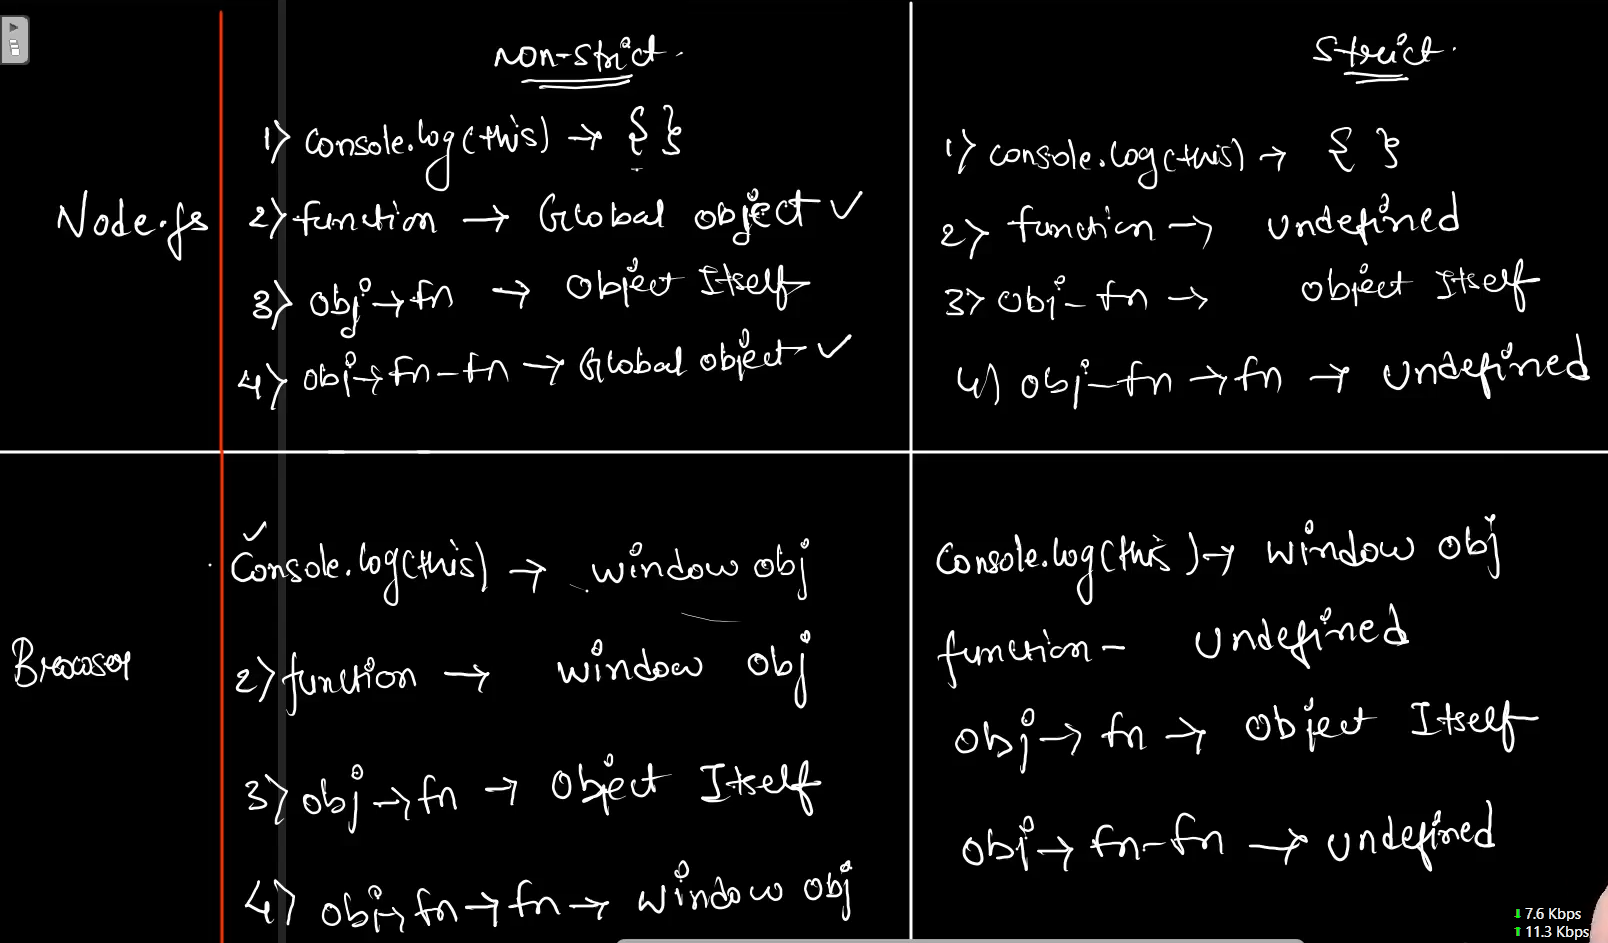 non-strict.
1) console.log(this) → { }
Node.js
2) function → Global object ✓
3) obj → fn → Object Itself
4) obj → fn - fn → Global object ✓
strict.
1) console.log(this) → { }
2) function → undefined
3) obj - fn → object Itself
4) obj - fn → fn → undefined
Browser
✓
Console.log(this) → window obj
2) function → window obj
3) obj → fn → Object Itself
4) obj → fn → fn → window obj
Console.log(this) → window obj
function - undefined
obj → fn → Object Itself
obj → fn - fn → undefined
↓ 7.6 Kbps
↑ 11.3 Kbps